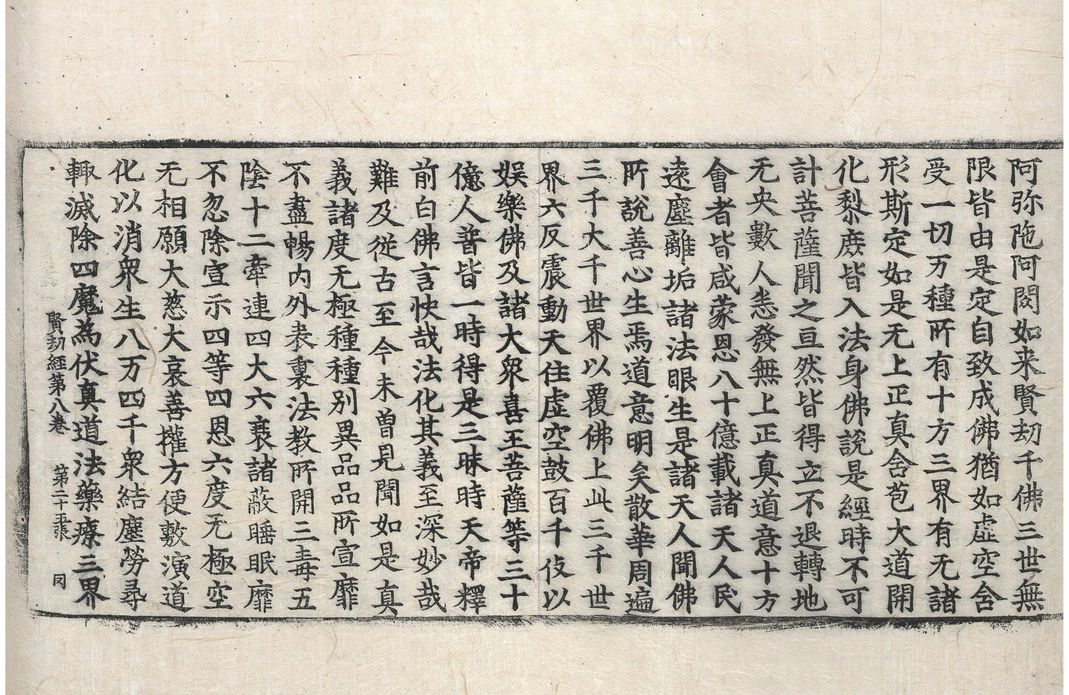 阿弥陁阿閦如来賢劫千佛三世無
限皆由是定自致成佛猶如虛空含
受一切万種所有十方三界有无諸
形斯定如是无上正真含苞大道開
化黎庶皆入法身佛說是經時不可
計菩薩聞之亘然皆得立不退轉地
无央數人悉發無上正真道意十方
會者皆咸蒙恩八十億載諸天人民
遠塵離垢諸法眼生是諸天人聞佛
所說善心生焉道意明矣散華周遍
三千大千世界以覆佛上此三千世
界六反震動天住虛空鼓百千伎以
娛樂佛及諸大衆喜王菩薩等三十
億人普皆一時得是三昧時天帝釋
前白佛言快哉法化其義至深妙哉
難及從古至今未曾見聞如是真
義諸度无極種種別異品品所宣靡
不盡暢內外表裏法教所開三毒五
陰十二牽連四大六衰諸蔽睡眠靡
不忽除宣示四等四恩六度无極空
无相願大慈大哀善攉方便敷演道
化以消衆生八万四千衆結塵勞尋
輙滅除四魔為伏真道法藥療三界
賢劫經第八卷 第二十張 冈